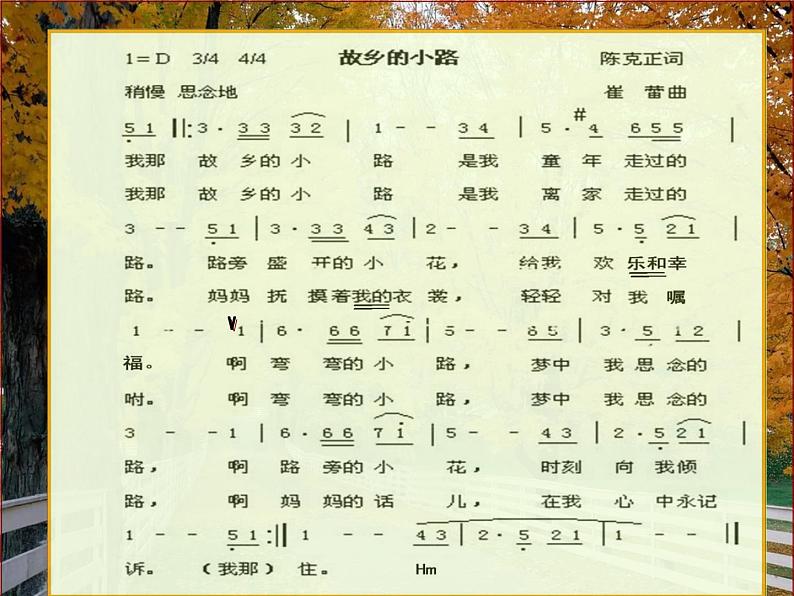 1= D 3/4 4/4 故乡的小路 陈克正词
稍慢 思念地 崔蕾曲
5 1 ‖: 3 · 3 3 3 2 | 1 - - 3 4 | 5 · #4 6 5 5 |
我那 故 乡的 小 路 是我 童 年 走过的
我那 故 乡的 小 路 是我 离 家 走过的
3 - - 5 1 | 3 · 3 3 4 3 | 2 - - 3 4 | 5 · 5 2 1 |
路。 路旁 盛 开的 小 花, 给我 欢 乐和幸
路。 妈妈 抚 摸着我的衣 裳, 轻轻 对 我 嘱
1 - - V1 | 6 · 6 6 7 i | 5 - - 6 5 | 3 · 5 1 2
福。 啊 弯 弯的 小 路, 梦中 我 思 念的
咐。 啊 弯 弯的 小 路, 梦中 我 思 念的
3 - - 1 | 6 · 6 6 7 i | 5 - - 4 3 | 2 · 5 2 1 |
路, 啊 路 旁的 小 花, 时刻 向 我倾
路, 啊 妈 妈的 话 儿, 在我 心 中永记
1 - - 5 1 :‖ 1 - - 4 3 | 2 · 5 2 1 | 1 - - ‖
诉。 (我那) 住。 Hm